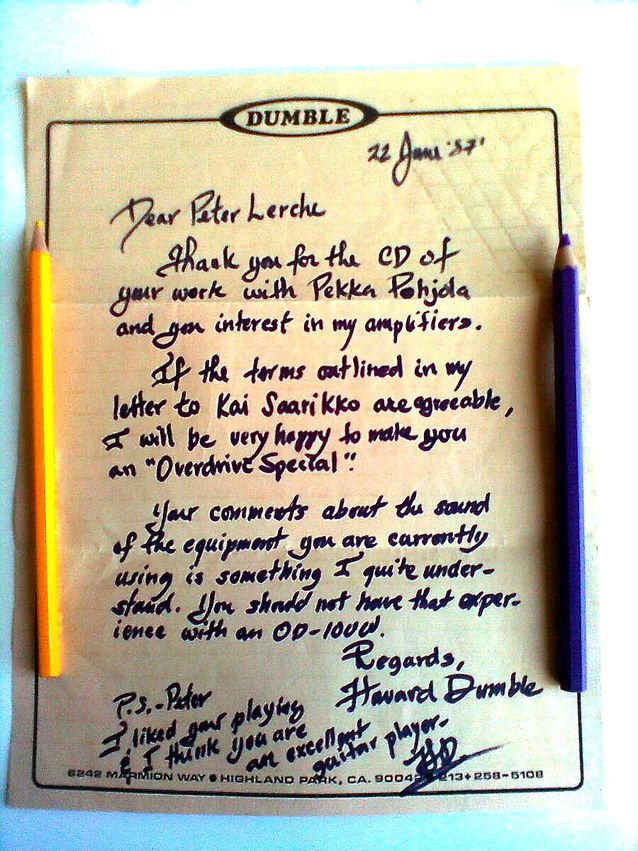 DUMBLE
22 June '87'
Dear Peter Lerche
Thank you for the CD of
your work with Pekka Pohjola
and you interest in my amplifiers.
If the terms outlined in my
letter to Kai Saarikko are agreeable,
I will be very happy to make you
an "Overdrive Special".
Your comments about the sound
of the equipment you are currently
using is something I quite under-
stand. You should not have that exper-
ience with an OD-100W.
Regards,
Howard Dumble
P.S.- Peter
I liked your playing
& I think you are
an excellent
guitar player.
HD
6242 MARMION WAY • HIGHLAND PARK, CA. 90042 • 213+258-5108